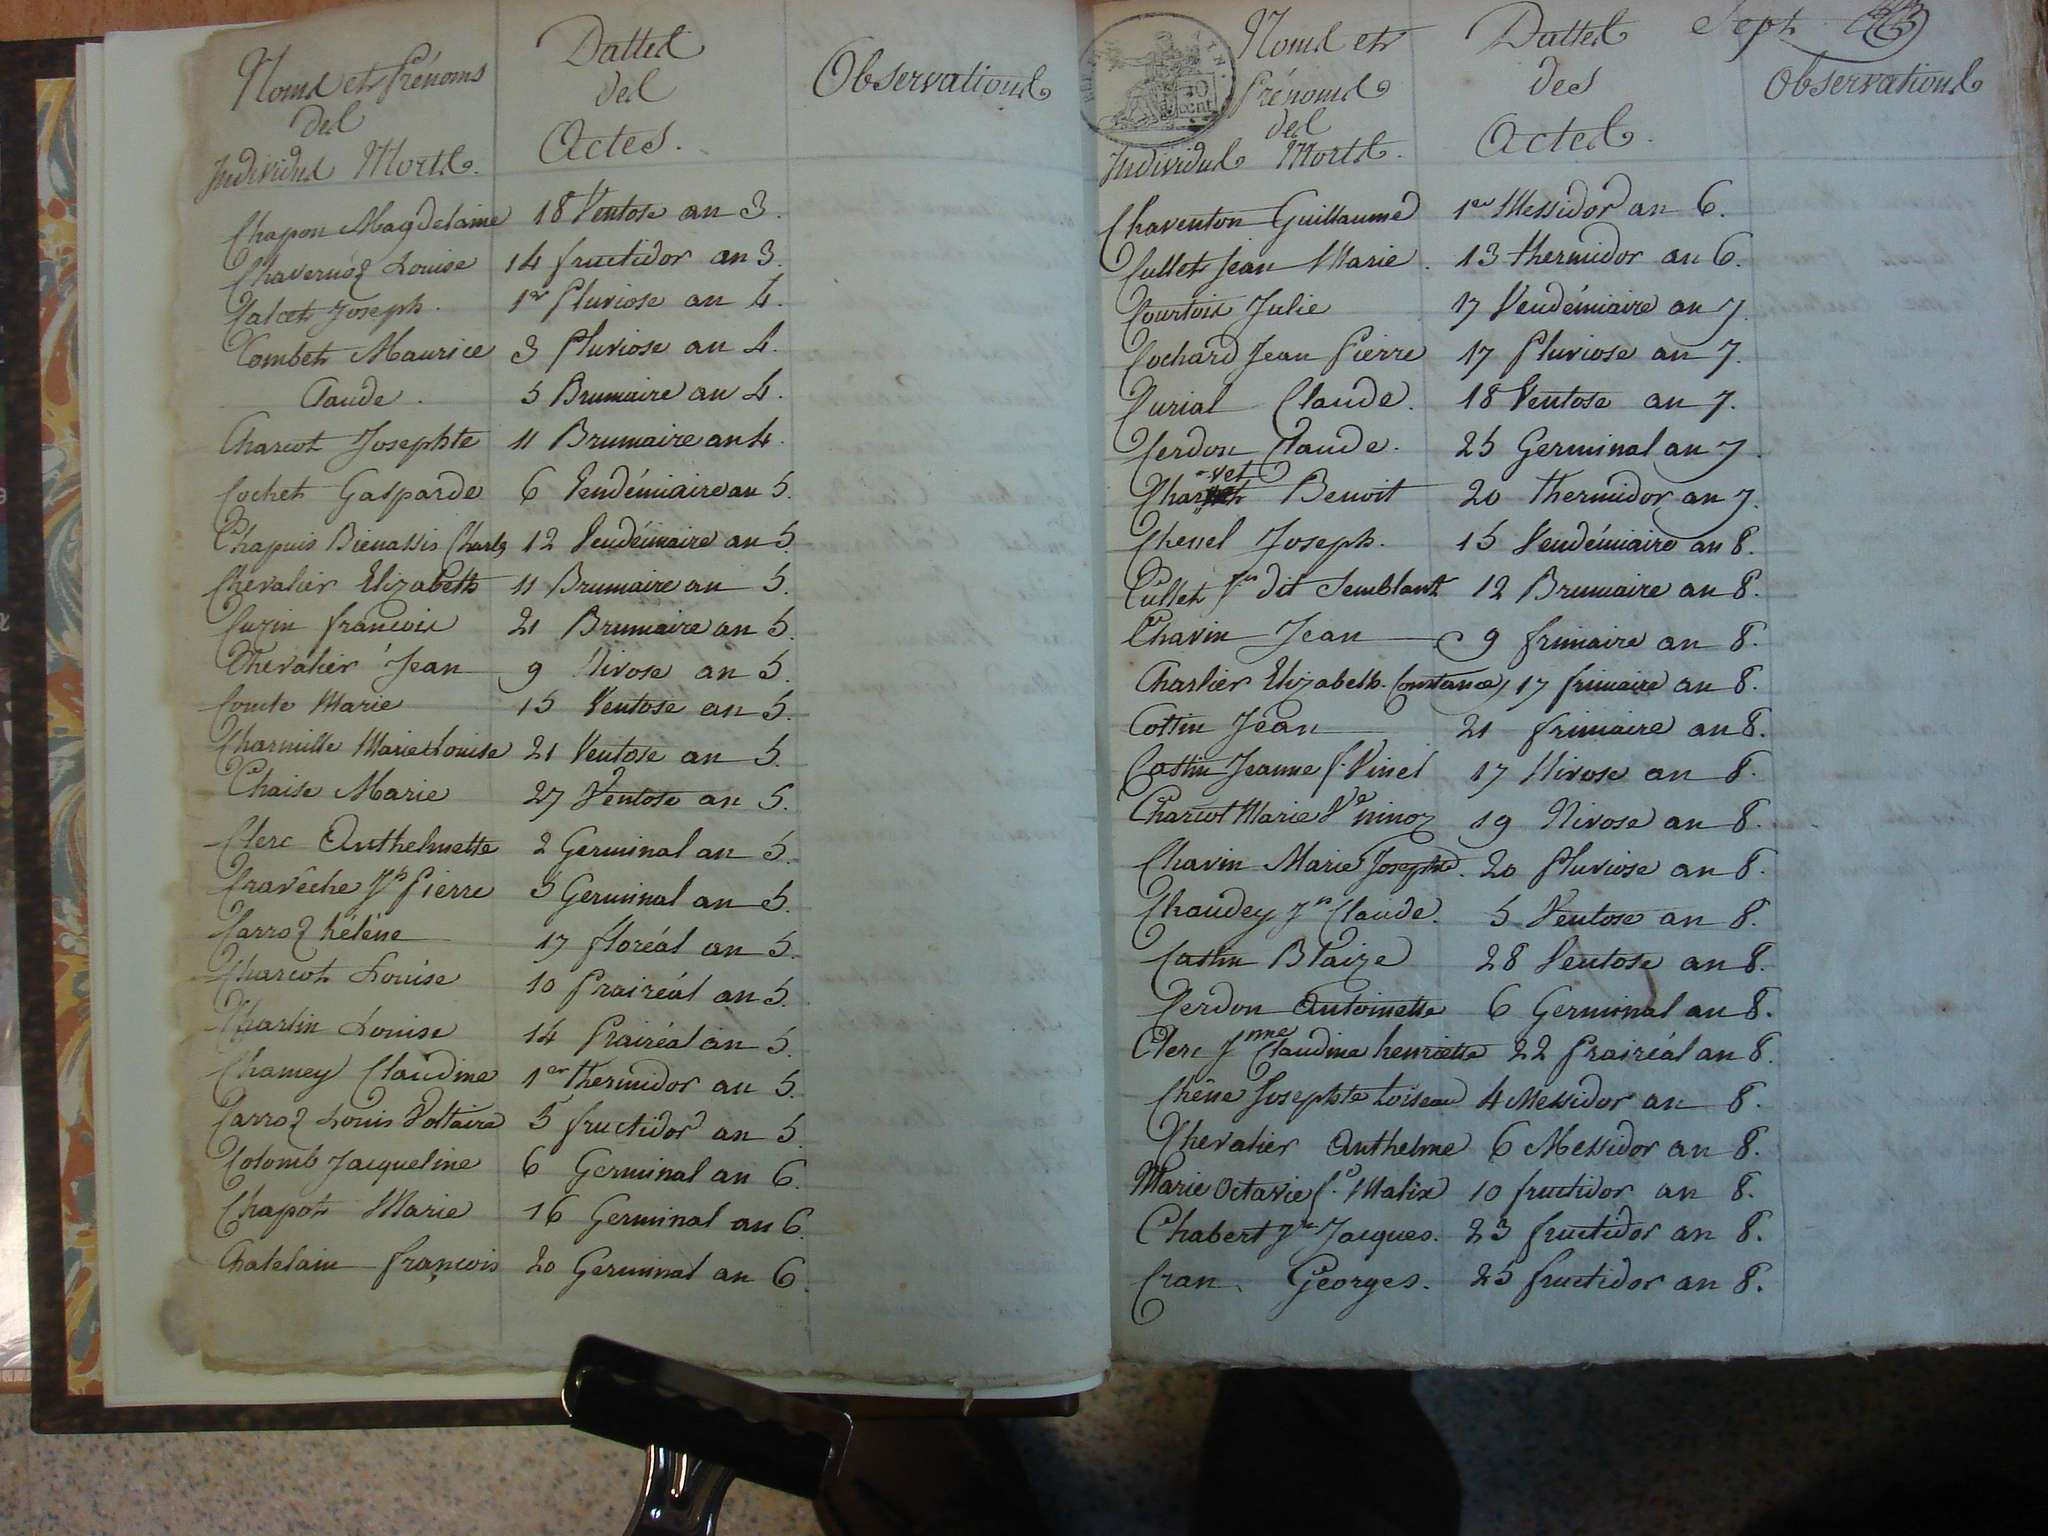 Noms et Prénoms
des
Individus Morts.
Dattes
des
Actes.
Observations
Chapon Magdelaine 18 Ventose an 3.
Chavernoz Louise 14 fructidor an 3.
Calcet Joseph. 1er Pluviose an 4.
Combet Maurice 3 Pluviose an 4.
Claude. 5 Brumaire an 4.
Charcot Josephte 11 Brumaire an 4.
Cochet Gasparde 6 Vendémiaire an 5.
Chapuis Bienassis Charles 12 Vendémiaire an 5.
Chevalier Elizabeth 11 Brumaire an 5.
Cuzin francois 21 Brumaire an 5.
Chevalier Jean 9 Nivose an 5.
Comte Marie 15 Ventose an 5.
Charmille Marie Louise 21 Ventose an 5.
Chaise Marie 27 Ventose an 5.
Clerc Anthelmette 2 Germinal an 5.
Cravêche Jh Pierre 5 Germinal an 5.
Carroz héléne 17 floréal an 5.
Charcot Louise 10 Prairéal an 5.
Charlin Louise 14 Prairéal an 5.
Chamey Claudine 1er thermidor an 5.
Carroz Louis Voltaire 5 fructidor an 5.
Colomb Jacqueline 6 Germinal an 6.
Chapot Marie 16 Germinal an 6.
Chatelain françois 20 Germinal an 6.
Noms et
Prénoms
des
Individus Morts.
Dattes
des
Actes.
Sept
Observations
50
cent
Chaventon Guillaume 1er Messidor an 6.
Cullet Jean Marie. 13 thermidor an 6.
Courtois Julie 17 Vendémiaire an 7.
Cochard Jean Pierre 17 Pluviose an 7.
Curial Claude. 18 Ventose an 7.
Cerdon Claude. 25 Germinal an 7.
-vet
Char Benoit 20 thermidor an 7.
Chenel Joseph. 15 Vendémiaire an 8.
Cullet dit Semblant 12 Brumaire an 8.
Chavin Jean 9 frimaire an 8.
Charlier Elizabeth Constance 17 frimaire an 8.
Cottin Jean 21 frimaire an 8.
Cattin Jeanne f. Vinel 17 Nivose an 8.
Charcot Marie Ve ninoz 19 Nivose an 8.
Chavin Marie Josephe. 20 Pluviose an 8.
Chaudey Jn Claude. 5 Ventose an 8.
Cattin Blaize 28 Ventose an 8.
Cerdon Antoinette 6 Germinal an 8.
Clerc Jnne Claudine henriette 22 Prairéal an 8.
Chêne Josephte Loiseau 4 Messidor an 8.
Chevalier Anthelme 6 Messidor an 8.
Marie Octavie f.e Malix 10 fructidor an 8.
Chabert Jn Jacques. 23 fructidor an 8.
Cran Georges. 25 fructidor an 8.